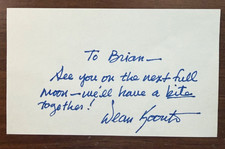 To Brian—
See you on the next full
moon—we'll have a bite
together!
Dean Koontz